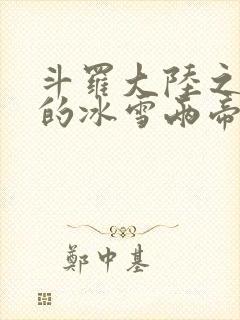 斗羅大陸之
的冰雪兩帝
鄭中基